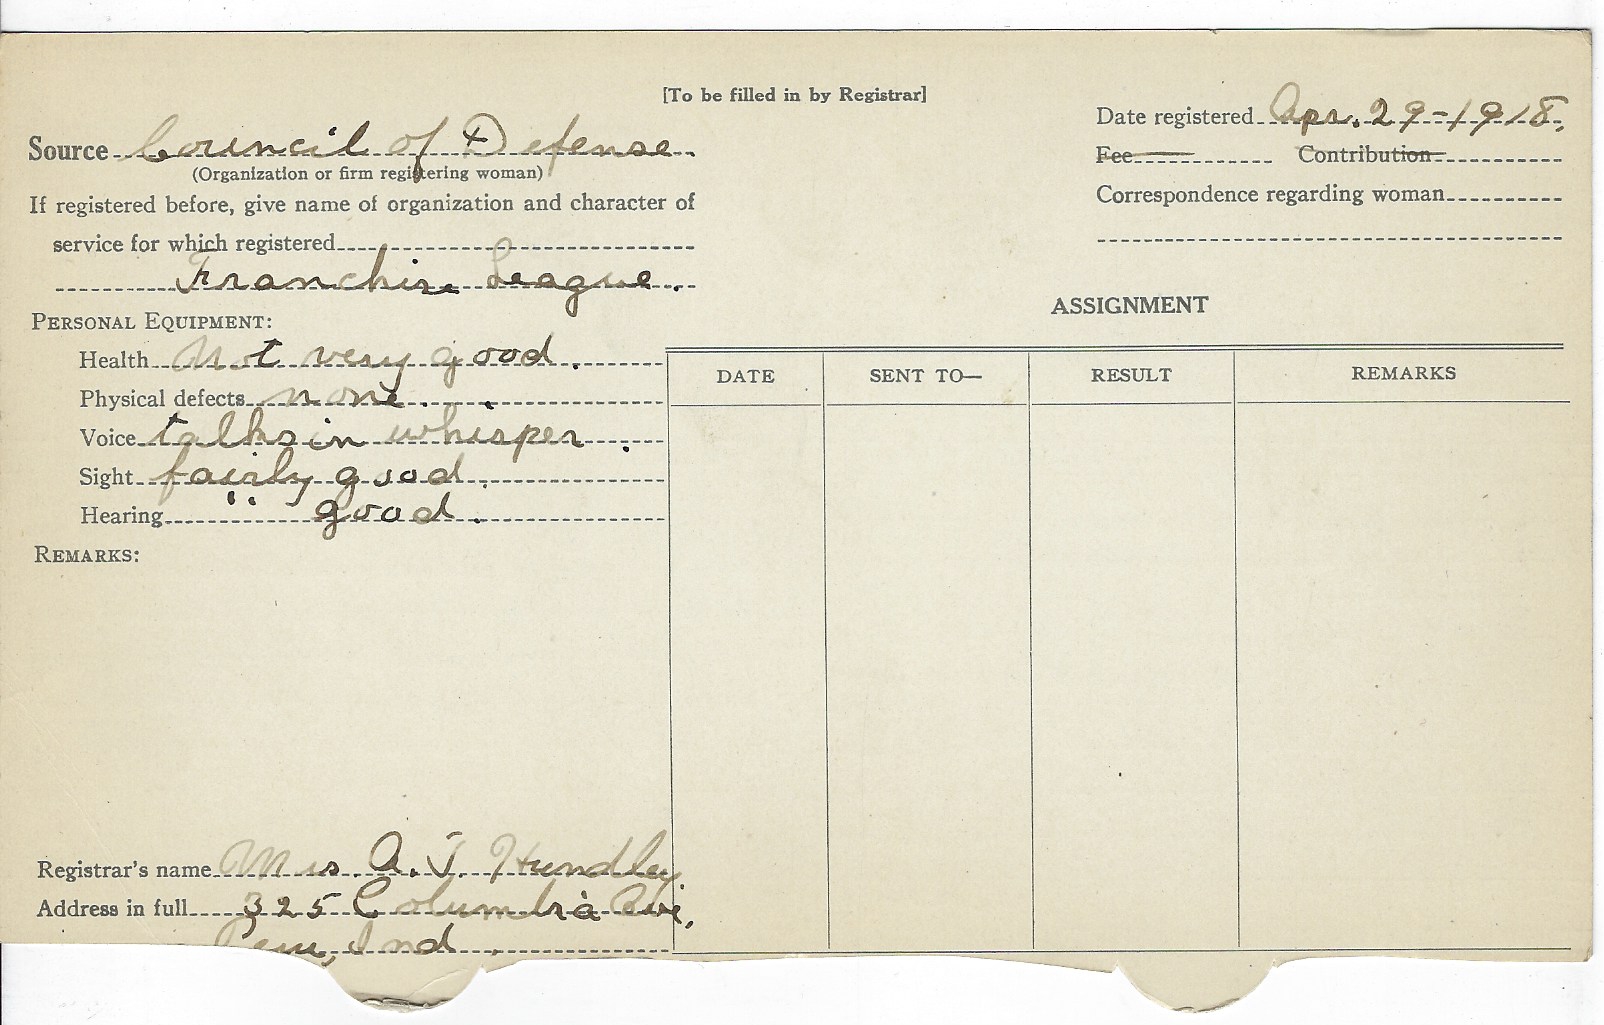 [To be filled in by Registrar]
Source Council of Defense
(Organization or firm registering woman)
If registered before, give name of organization and character of
service for which registered
Franchise League.
PERSONAL EQUIPMENT:
Health Not very good.
Physical defects none.
Voice talks in whisper.
Sight fairly good.
Hearing " good.
REMARKS:
Registrar's name Mrs. A. J. Hundley
Address in full 325 Columbia Ave,
Peru, Ind.
Date registered Apr. 29-1918.
Fee Contribution
Correspondence regarding woman
ASSIGNMENT
DATE SENT TO— RESULT REMARKS